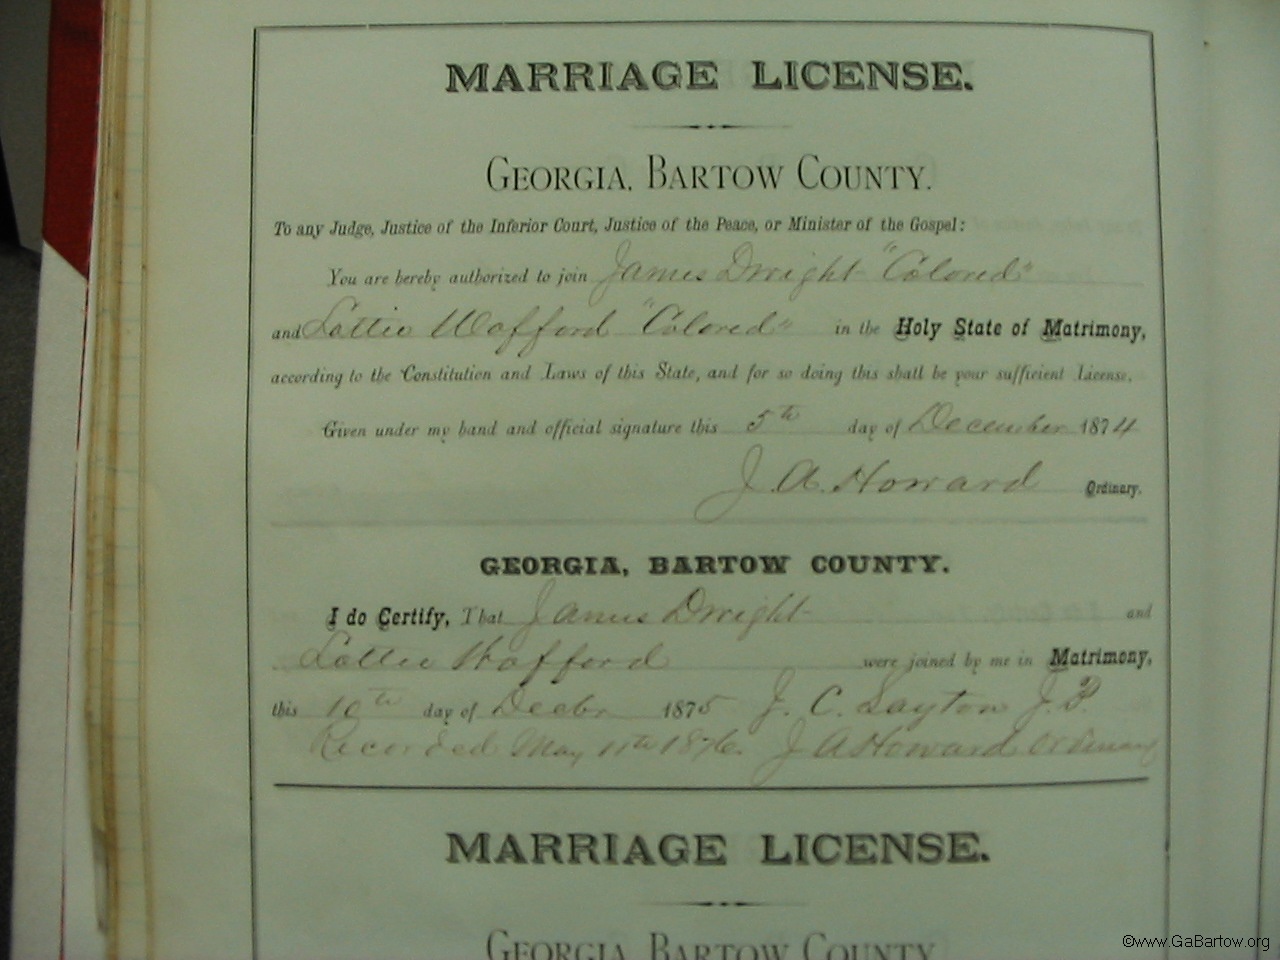 MARRIAGE LICENSE.
GEORGIA, BARTOW COUNTY.
To any Judge, Justice of the Inferior Court, Justice of the Peace, or Minister of the Gospel:
You are hereby authorized to join James Dwight "Colored"
and Lottie Wofford "Colored" in the Holy State of Matrimony,
according to the Constitution and Laws of this State, and for so doing this shall be your sufficient License.
Given under my hand and official signature this 5th day of December 1874
J. A. Howard Ordinary.
GEORGIA, BARTOW COUNTY.
I do Certify, That James Dwight and
Lottie Wofford were joined by me in Matrimony,
this 10th day of Decbr 1875 J. C. Layton J.P.
Recorded May 11th 1876. J A Howard Ordinary
MARRIAGE LICENSE.
GEORGIA, BARTOW COUNTY
©www.GaBartow.org